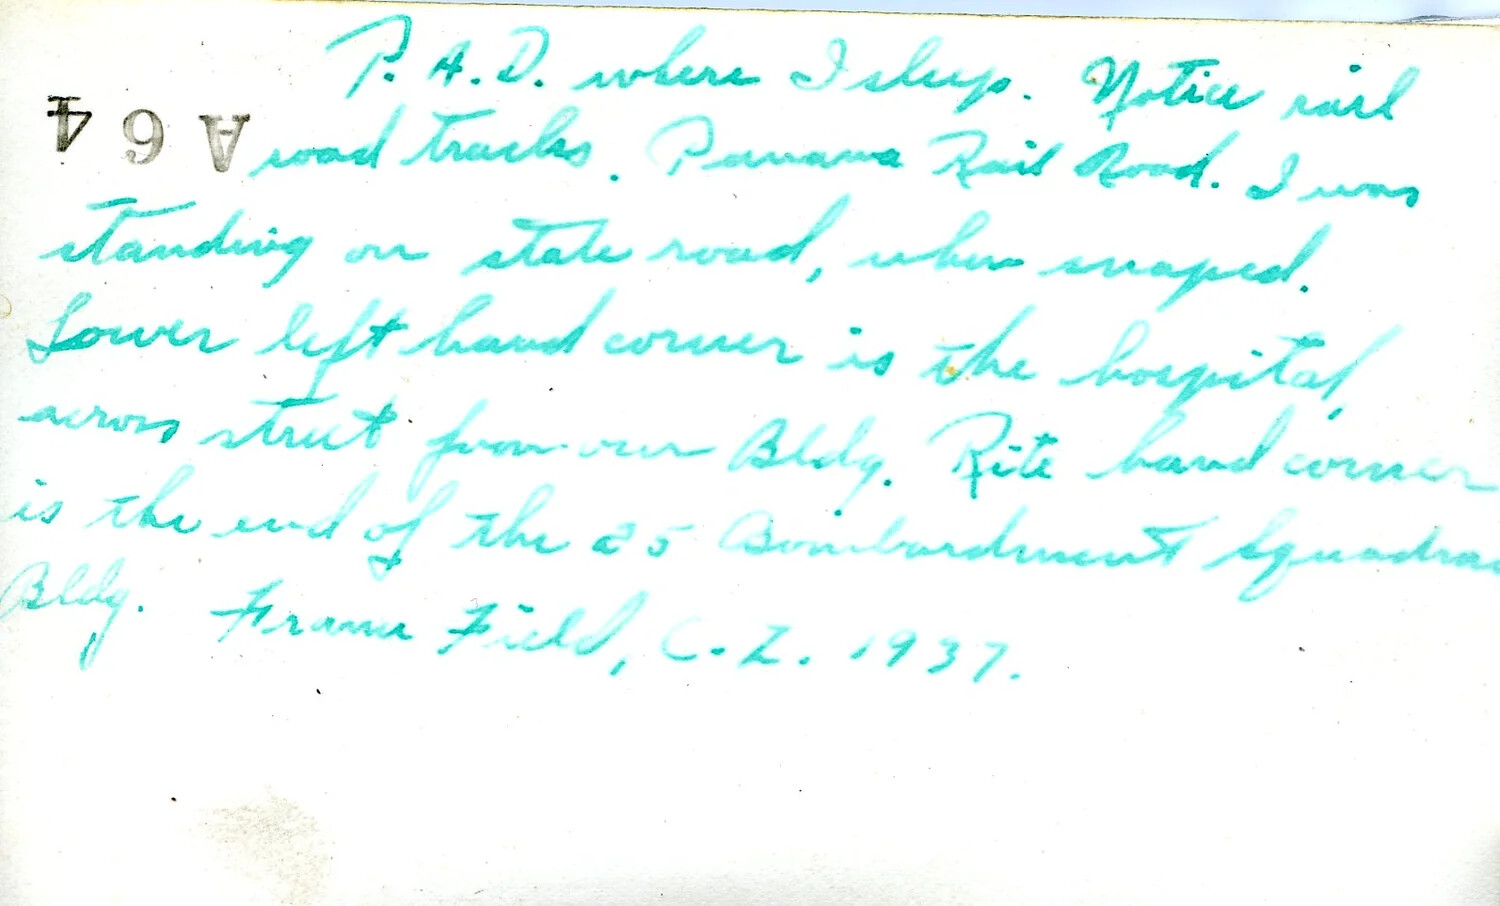 P. A. D. where I sleep. Notice rail
A64
road tracks. Panama Rail Road. I was
standing on state road, when snaped.
Lower left hand corner is the hospital,
across street from our Bldg. Rite hand corner
is the end of the 25 Bombardment Squadron
Bldg. France Field, C. Z. 1937.